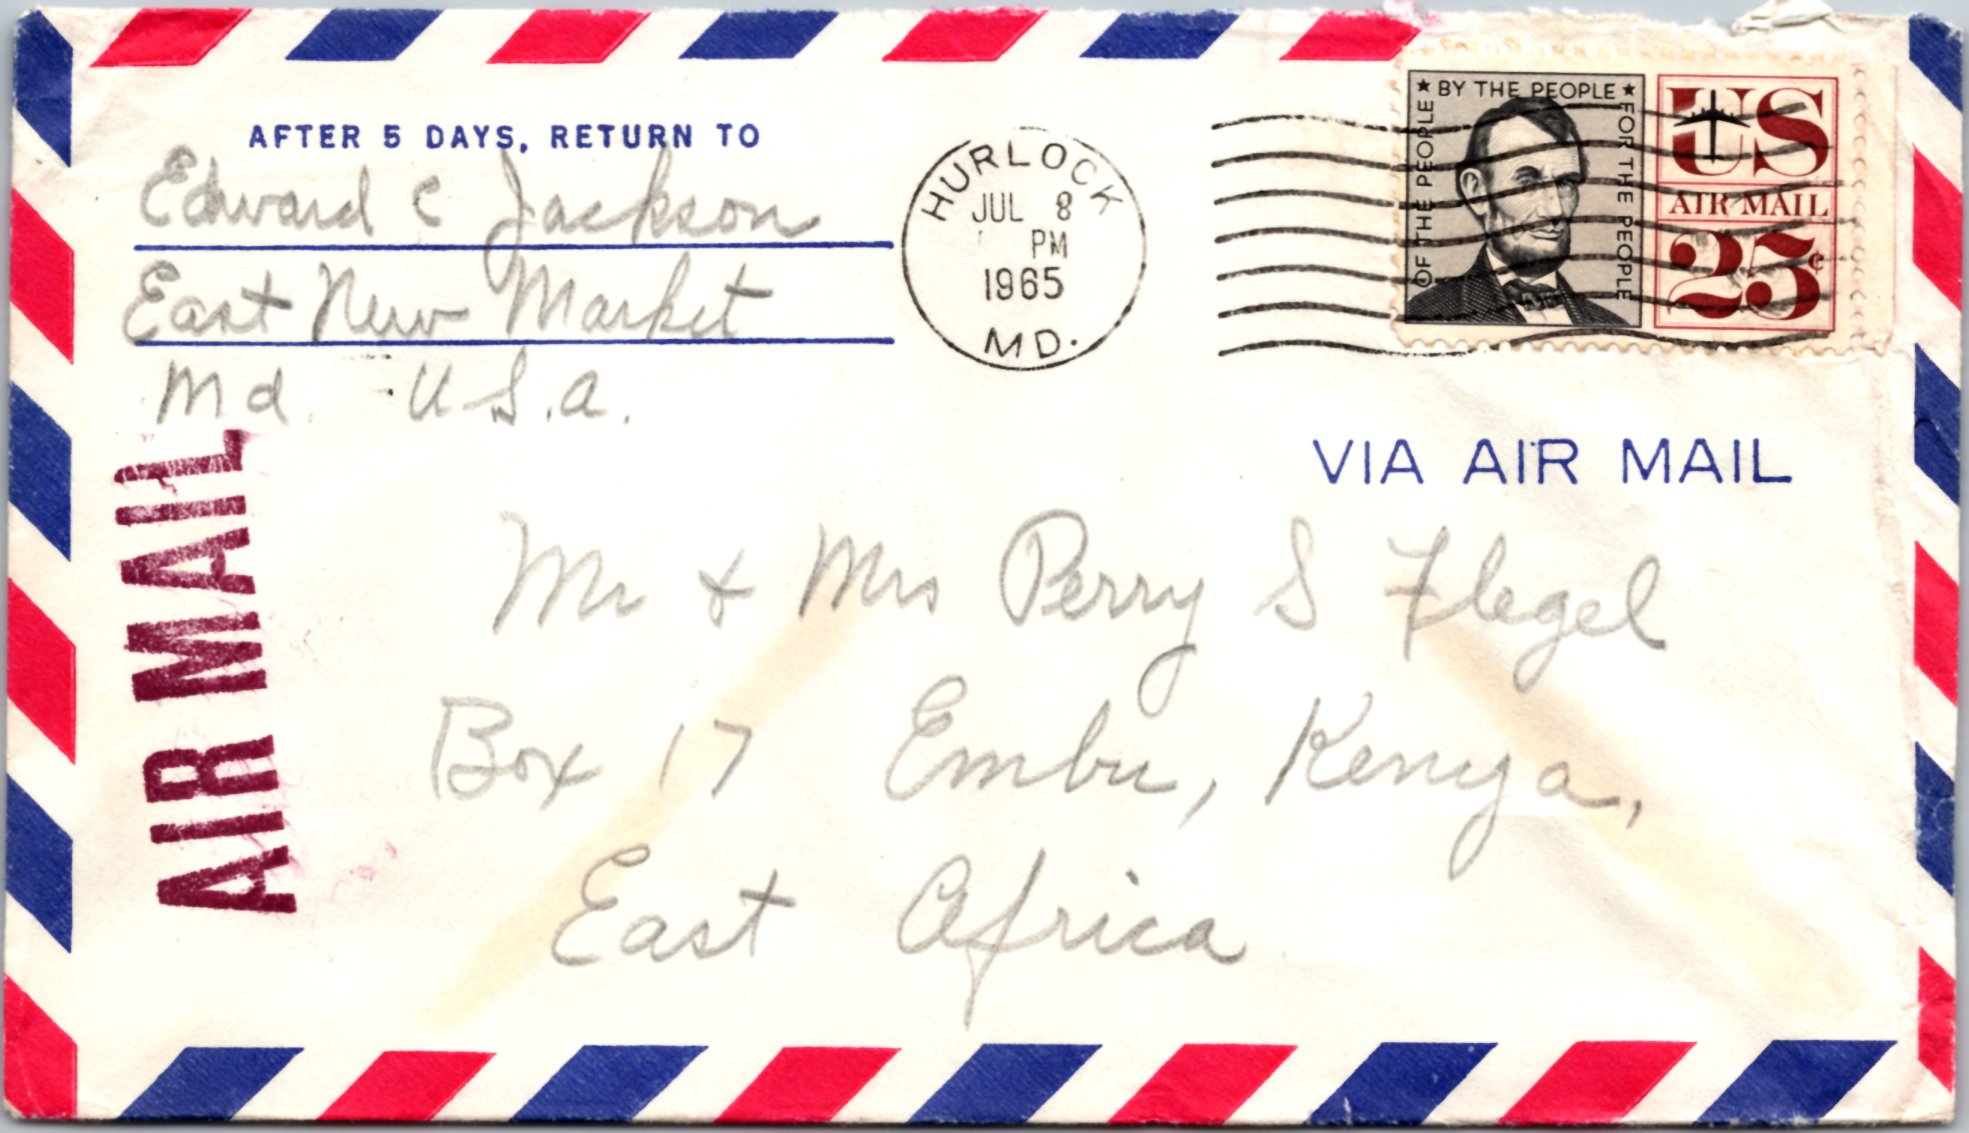 AFTER 5 DAYS, RETURN TO
Edward C Jackson
East New Market
Md. U.S.A.
HURLOCK
JUL 8
PM
1965
MD.
OF THE PEOPLE ★ BY THE PEOPLE ★ FOR THE PEOPLE
US
AIR MAIL
25¢
VIA AIR MAIL
AIR MAIL
Mr & Mrs Perry S Flegel
Box 17 Embu, Kenya,
East Africa